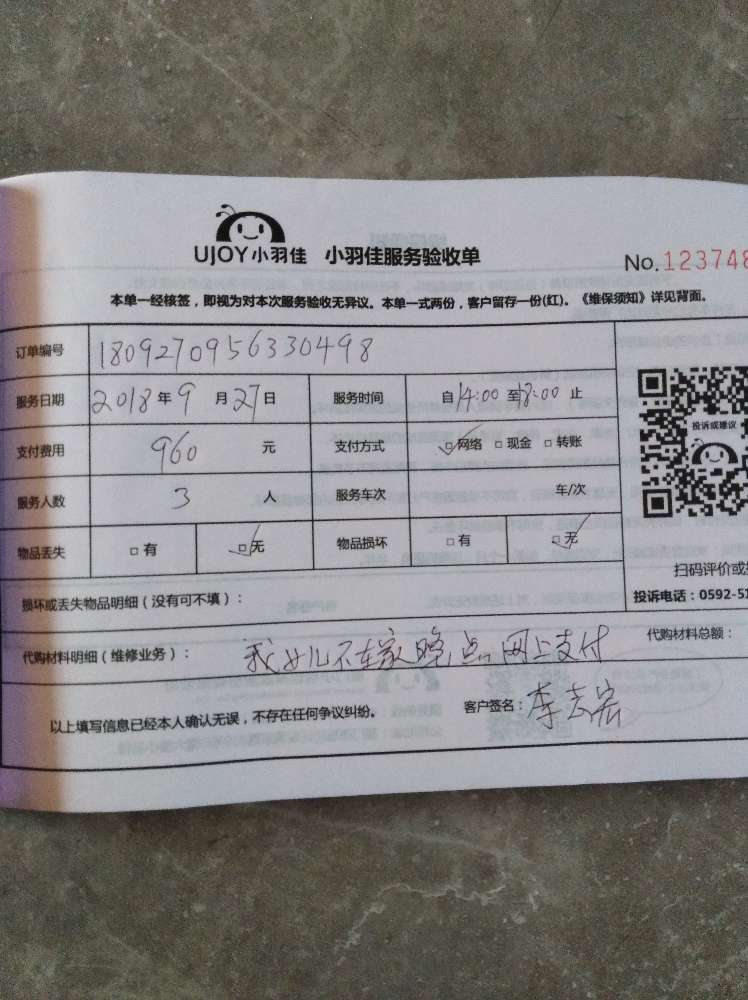 UJOY小羽佳 小羽佳服务验收单
No.123748
本单一经核签，即视为对本次服务验收无异议。本单一式两份，客户留存一份(红)。《维保须知》详见背面。
订单编号 180927095633​0498
服务日期 2018年9月27日 服务时间 自14:00至18:00止
支付费用 960 元 支付方式 □网络 □现金 □转账
投诉或建议
服务人数 3 人 服务车次 车/次
物品丢失 □有 □无 物品损坏 □有 □无
扫码评价或
损坏或丢失物品明细（没有可不填）：
投诉电话：0592-51
代购材料明细（维修业务）： 我女儿不在家晚点网上支付
代购材料总额：
以上填写信息已经本人确认无误，不存在任何争议纠纷。 客户签名：李志宏